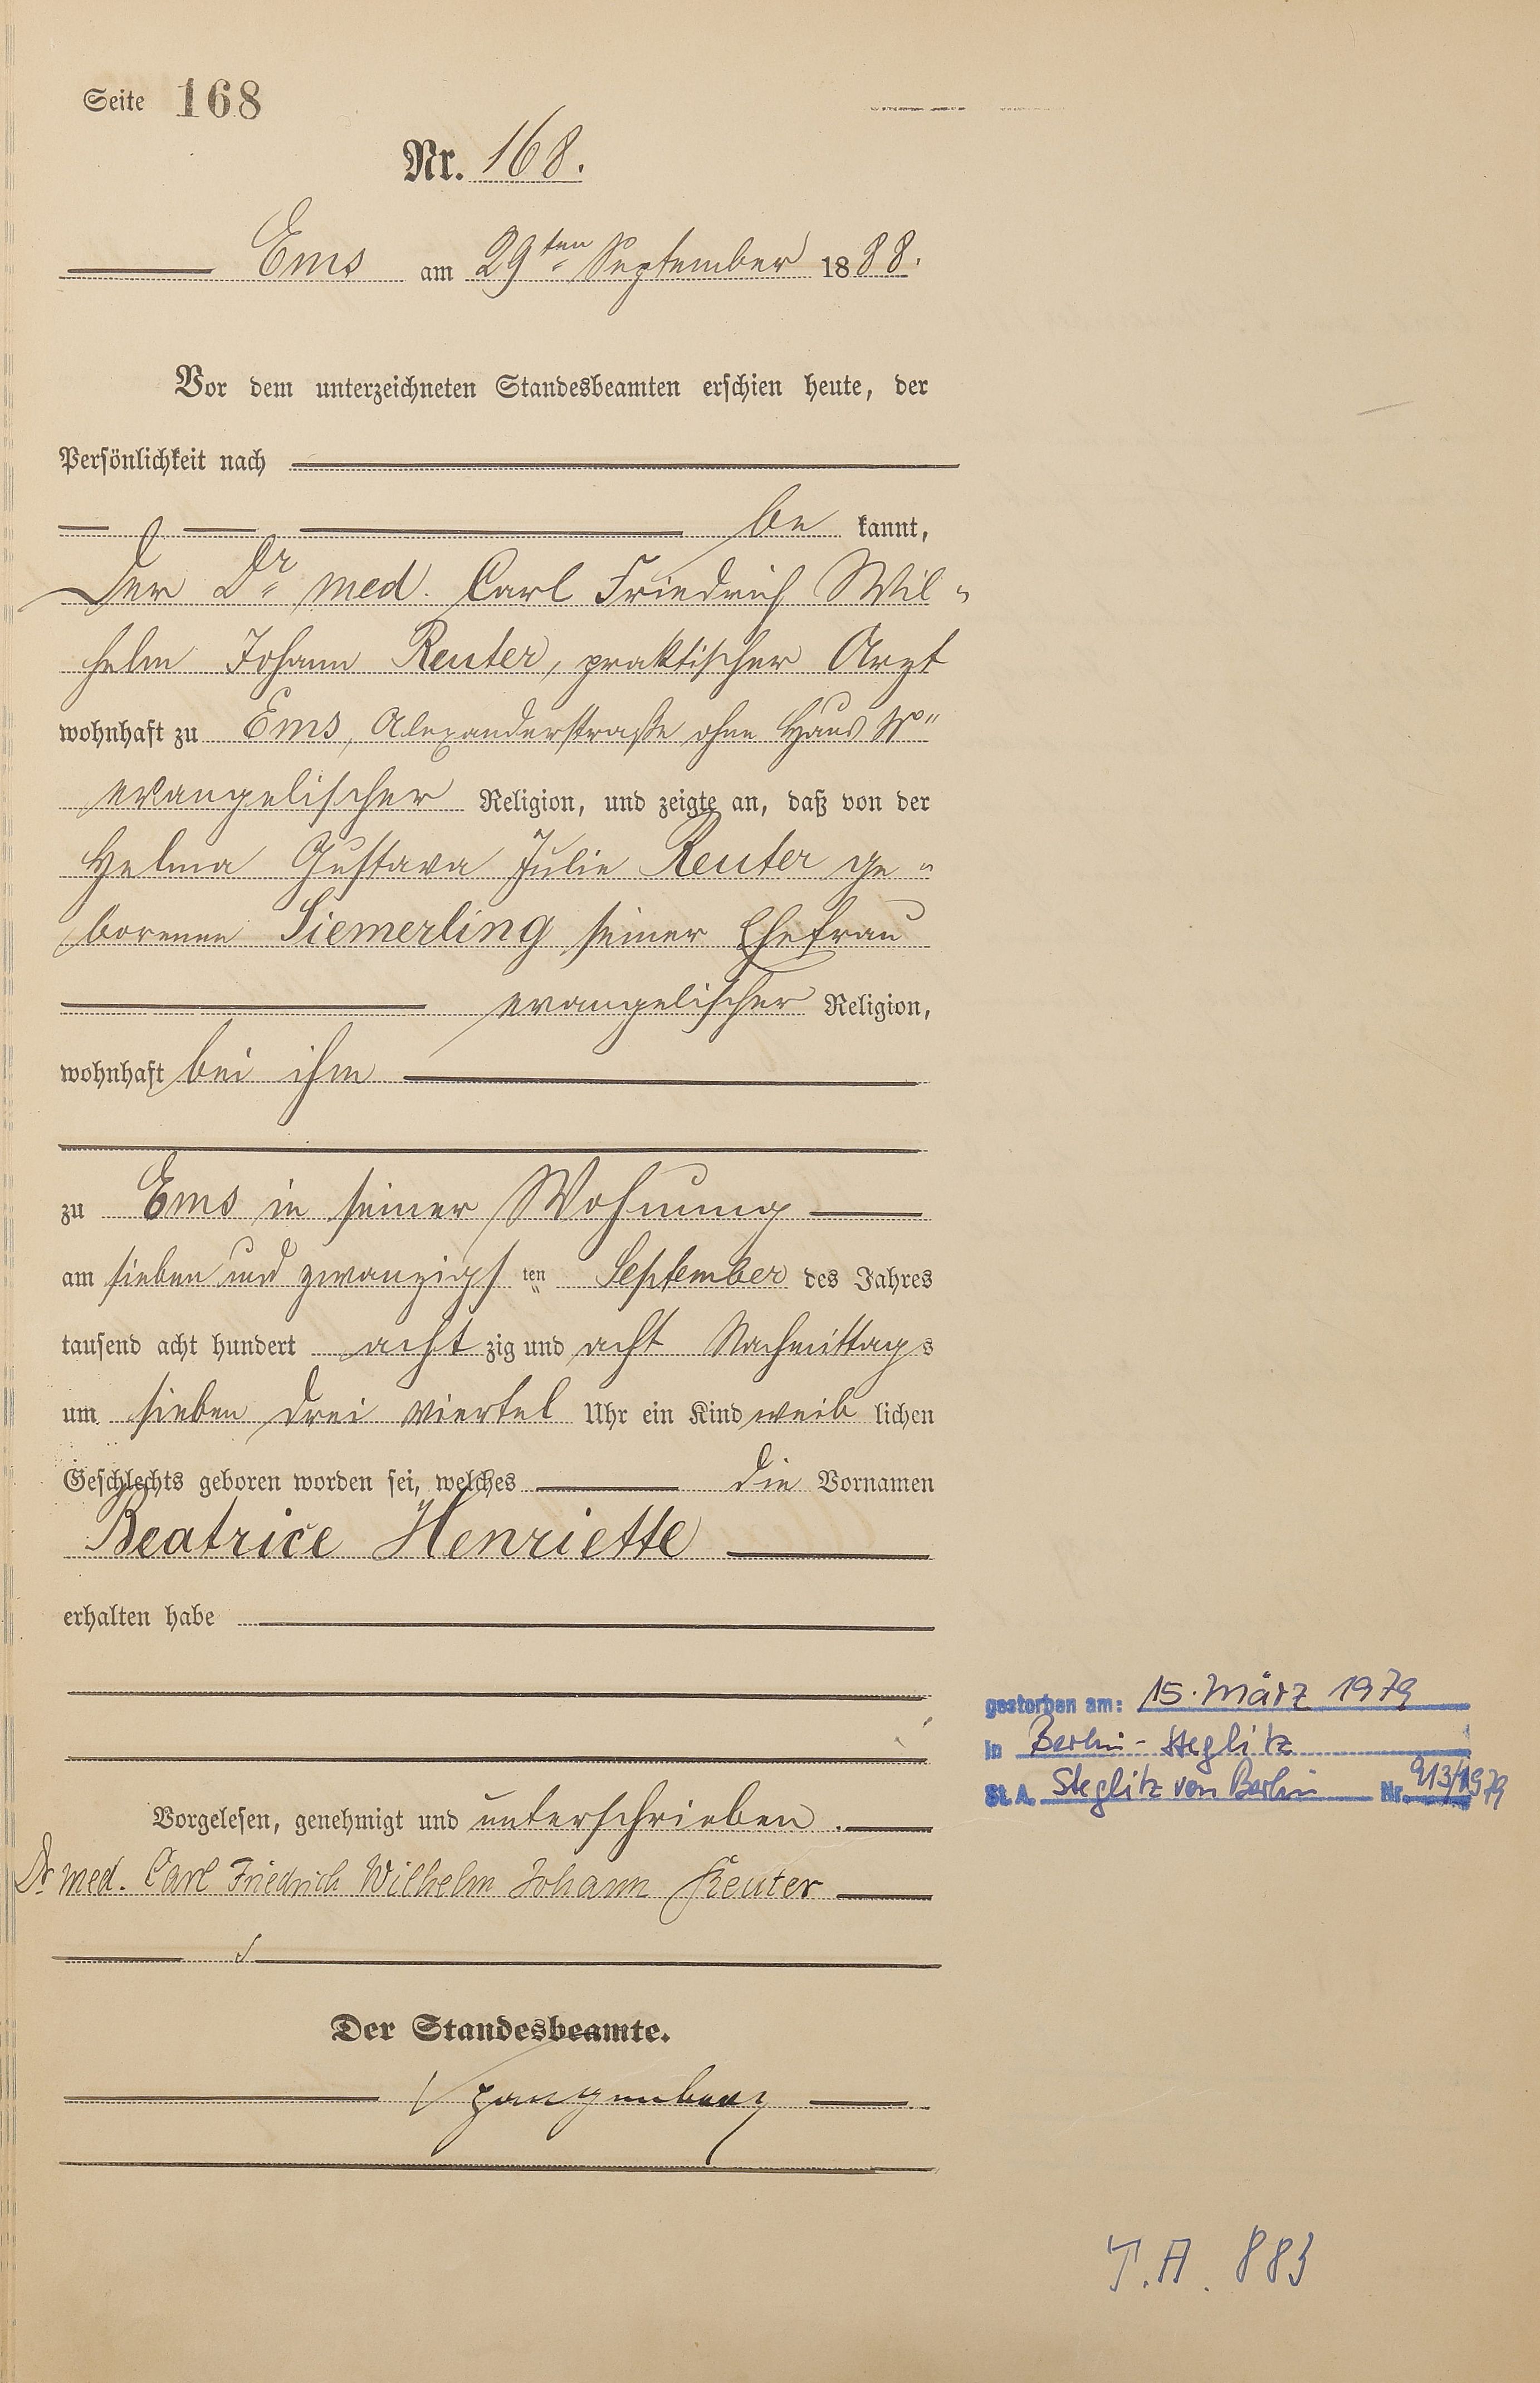 Seite 168
Nr. 168.
Ems am 29ten September 1888.
Vor dem unterzeichneten Standesbeamten erschien heute, der
Persönlichkeit nach
be kannt,
der Dr med. Carl Friedrich Wil-
helm Johann Reuter, praktischer Arzt
wohnhaft zu Ems, Alexanderstraße ohne Haus No
evangelischer Religion, und zeigte an, daß von der
Helma Gustava Julie Reuter ge-
borenen Siemerling seiner Ehefrau
evangelischer Religion,
wohnhaft bei ihm
zu Ems in seiner Wohnung
am sieben und zwanzigs ten September des Jahres
tausend acht hundert acht zig und acht Nachmittags
um sieben drei viertel Uhr ein Kind weib lichen
Geschlechts geboren worden sei, welches die Vornamen
Beatrice Henriette
erhalten habe
gestorben am: 15. März 1979
in Berlin-Steglitz
St.A. Steglitz von Berlin Nr. 913/1979
Vorgelesen, genehmigt und unterschrieben.
Dr. med. Carl Friedrich Wilhelm Johann Reuter
Der Standesbeamte.
Spangenberg
T.A. 883